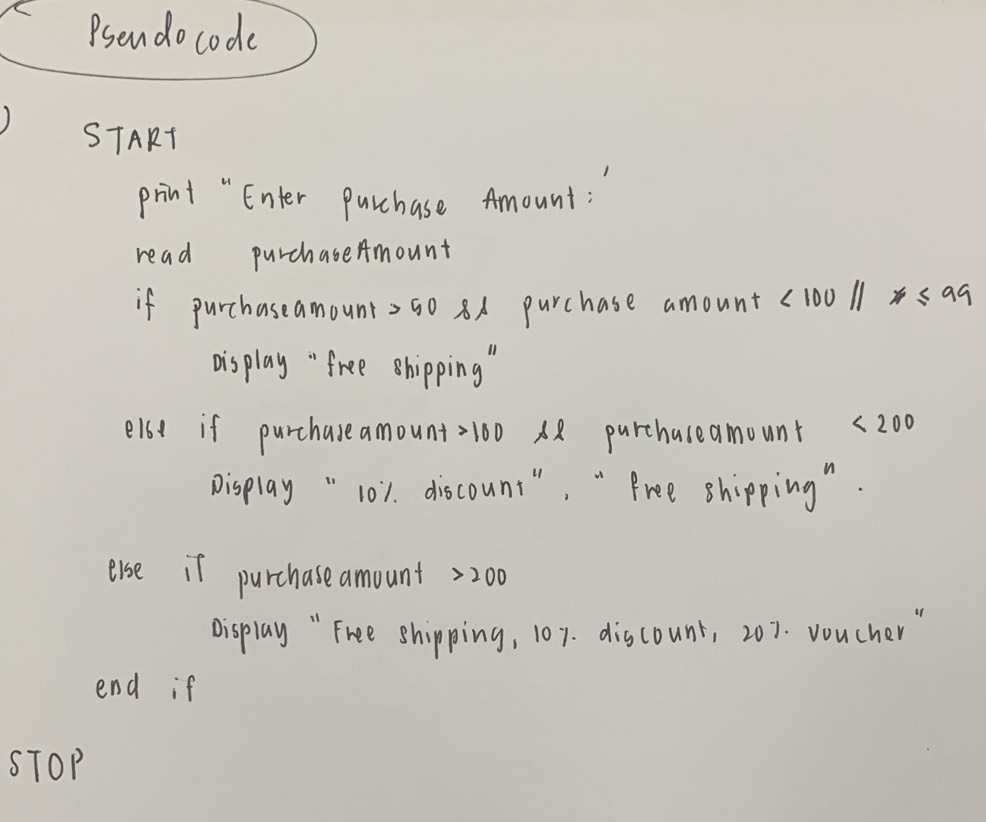 Pseudocode
)
START
print "Enter Purchase Amount:'
read purchaseAmount
if purchaseamount > 50 && purchase amount < 100 // * ≤ 99
Display "free shipping"
else if purchaseamount >100 && purchaseamount < 200
Display "10% discount", "free shipping".
else if purchaseamount >200
Display "Free shipping, 10% discount, 20% voucher"
end if
STOP